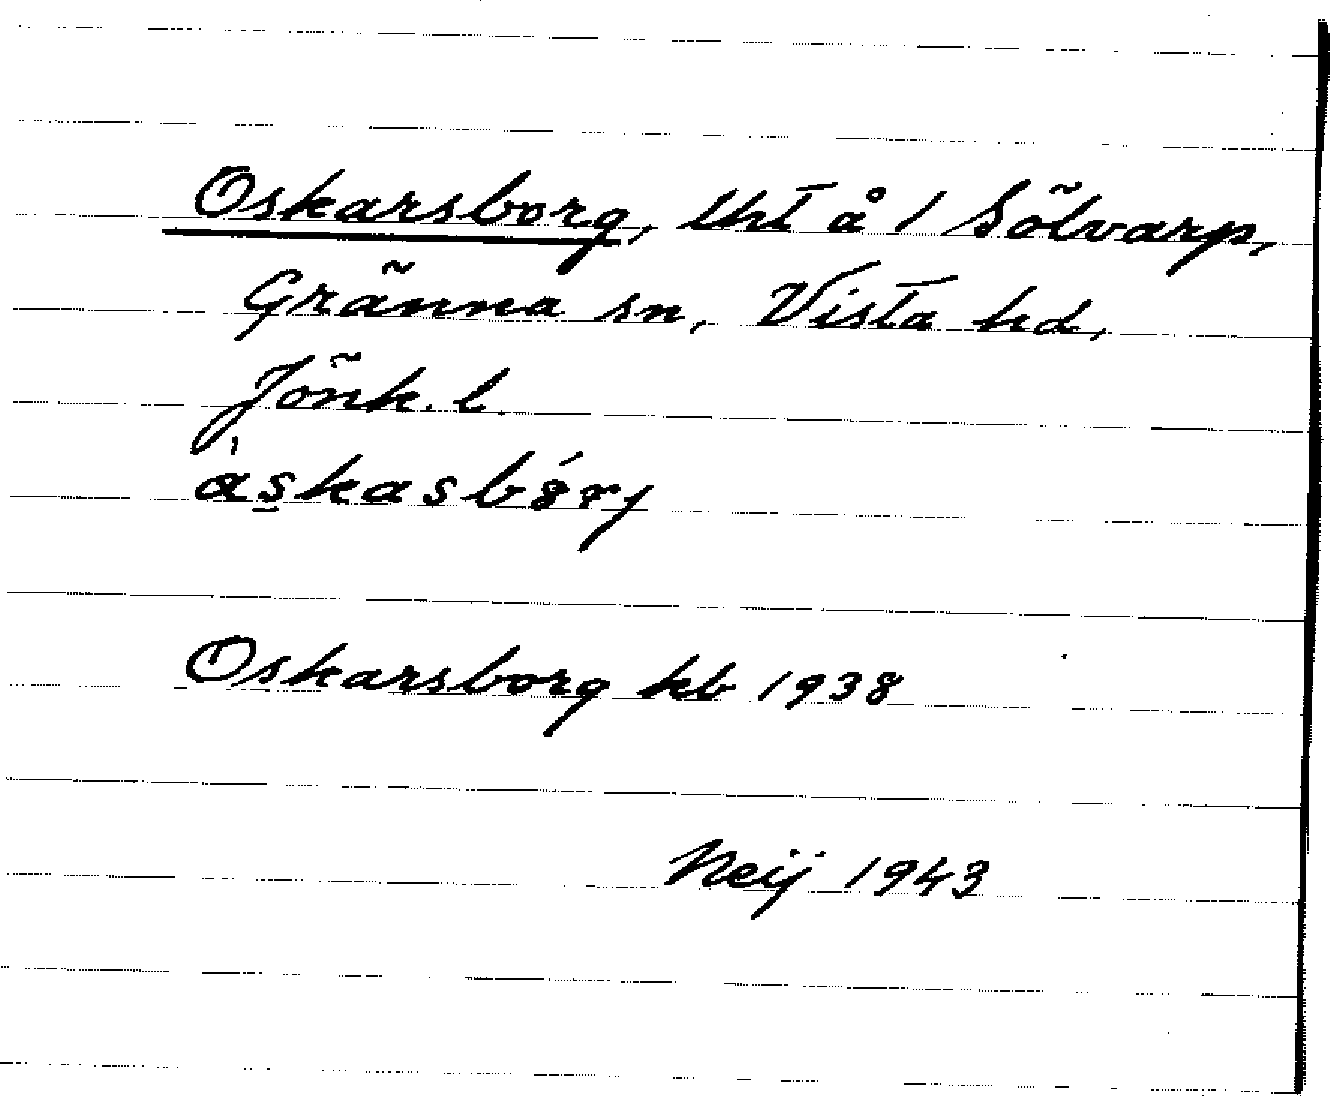 Oskarsborg, lht å 1 Sölvarp,
Gränna sn, Vista hd,
Jönk. l.
Oskarsborg kb 1938
Neij 1943